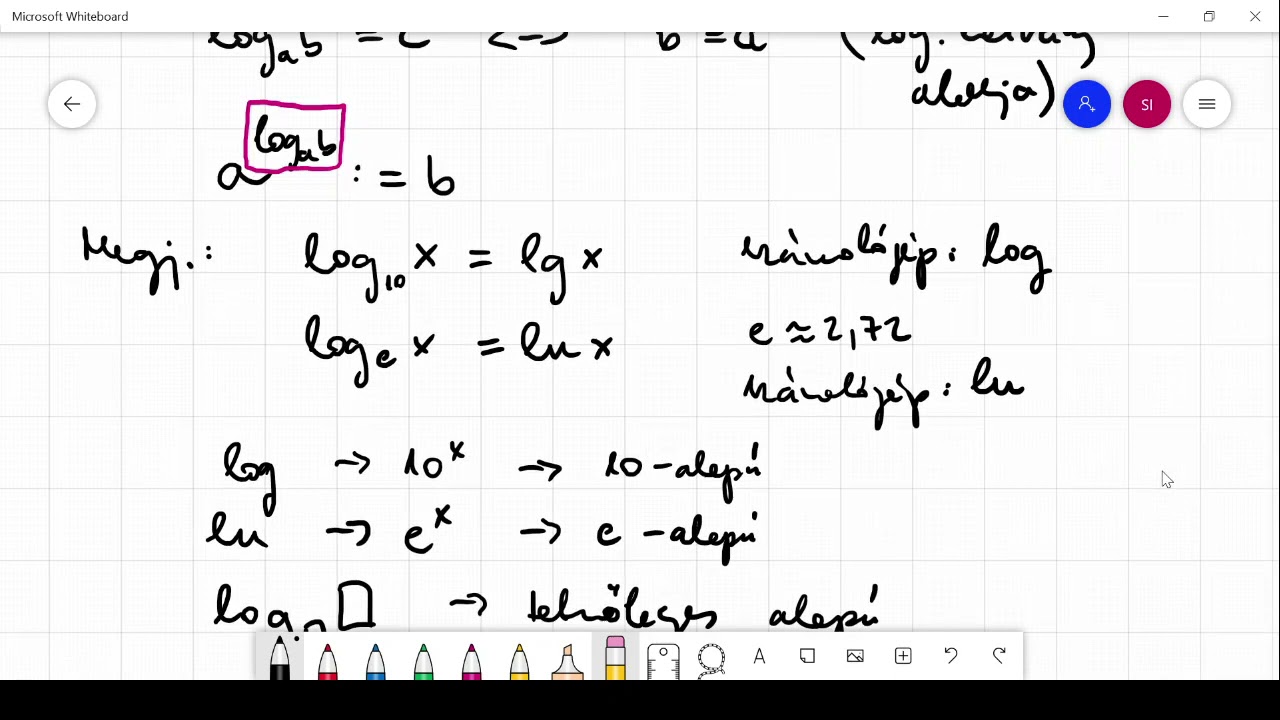 Microsoft Whiteboard
log_a b = c <=> b = a (log. látvány
alakja)
SI
a^{log_a b} := b
Megj.: log_10 x = lg x számológép: log
log_e x = ln x e ≈ 2,72
számológép: ln
log → 10^x → 10-alapú
ln → e^x → e-alapú
log_□ □ → tetszőleges alapú
A